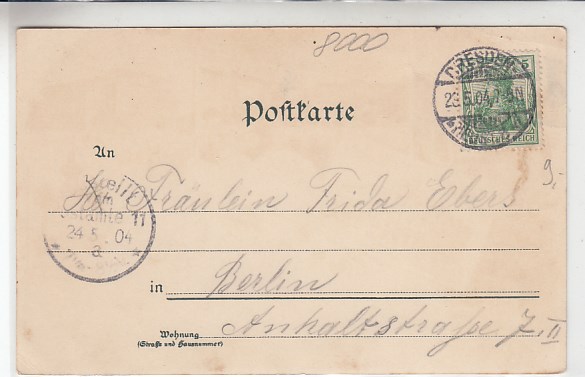 8000
DRESDEN
5
23.5.04. 7-8N
REICH
Postkarte
An
Fräulein Frida Ebers
11
24 5 04
a
9.-
in Berlin
Wohnung
(Straße und Hausnummer)
Anhaltstraße 7. II